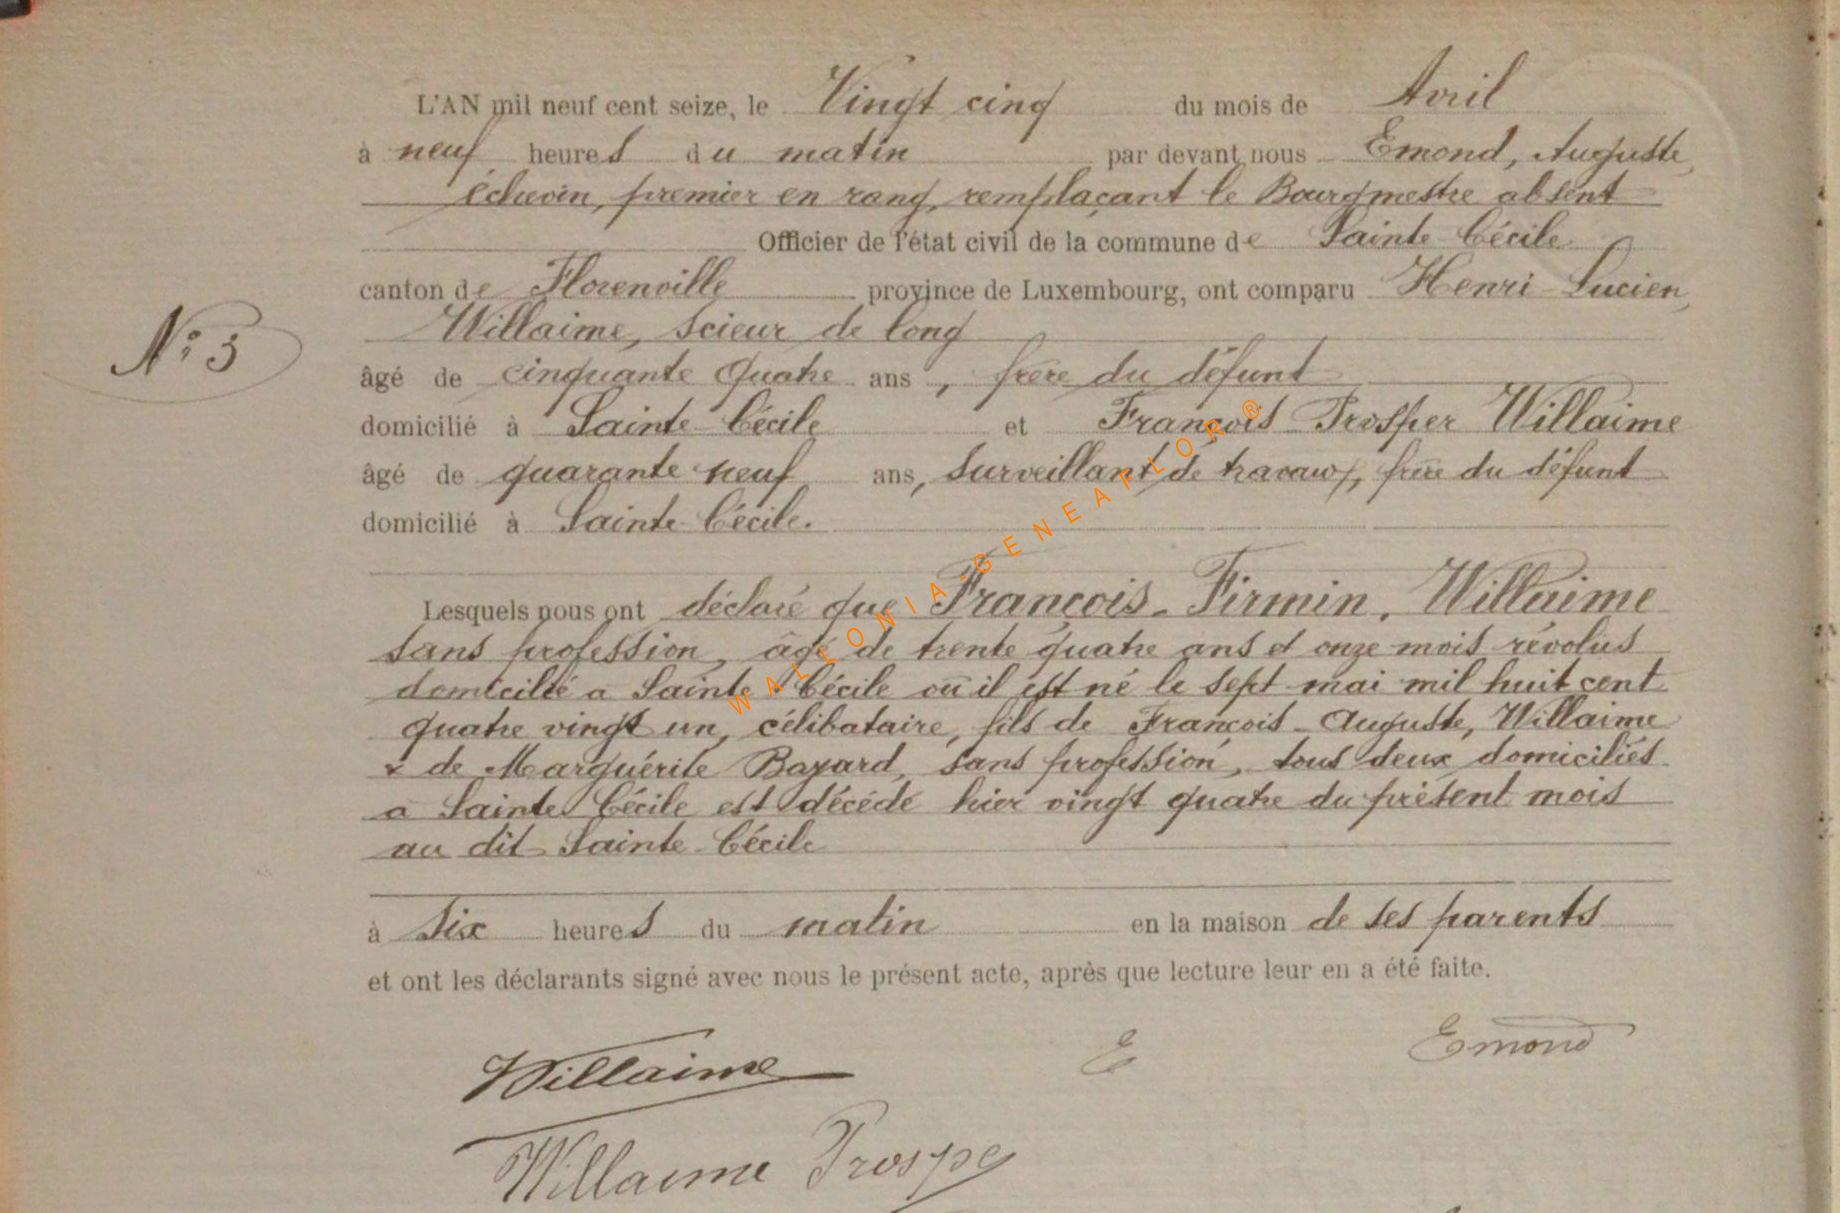 L'AN mil neuf cent seize, le Vingt cinq du mois de Avril
à neuf heures du matin par devant nous Emond, Auguste,
échevin, premier en rang, remplaçant le Bourgmestre absent
Officier de l'état civil de la commune de Sainte Cécile
canton de Florenville province de Luxembourg, ont comparu Henri Lucien,
Willaime, scieur de long
N° 3
âgé de cinquante quatre ans, frère du défunt
domicilié à Sainte Cécile et François Prosper Willaime
âgé de quarante neuf ans, surveillant de travaux, frère du défunt
domicilié à Sainte Cécile.
Lesquels nous ont déclaré que François-Firmin, Willaime
sans profession, âgé de trente quatre ans et onze mois révolus
domicilié a Sainte Cécile où il est né le sept mai mil huit cent
quatre vingt un, célibataire, fils de François-Auguste, Willaime
& de Marguérite Bayard, sans profession, tous deux domiciliés
a Sainte Cécile est décédé hier vingt quatre du présent mois
au dit Sainte Cécile
à six heures du matin en la maison de ses parents
et ont les déclarants signé avec nous le présent acte, après que lecture leur en a été faite.
E Emond
Willaime
Willaime Prosper
WALLONIA-GENEAFLOR®